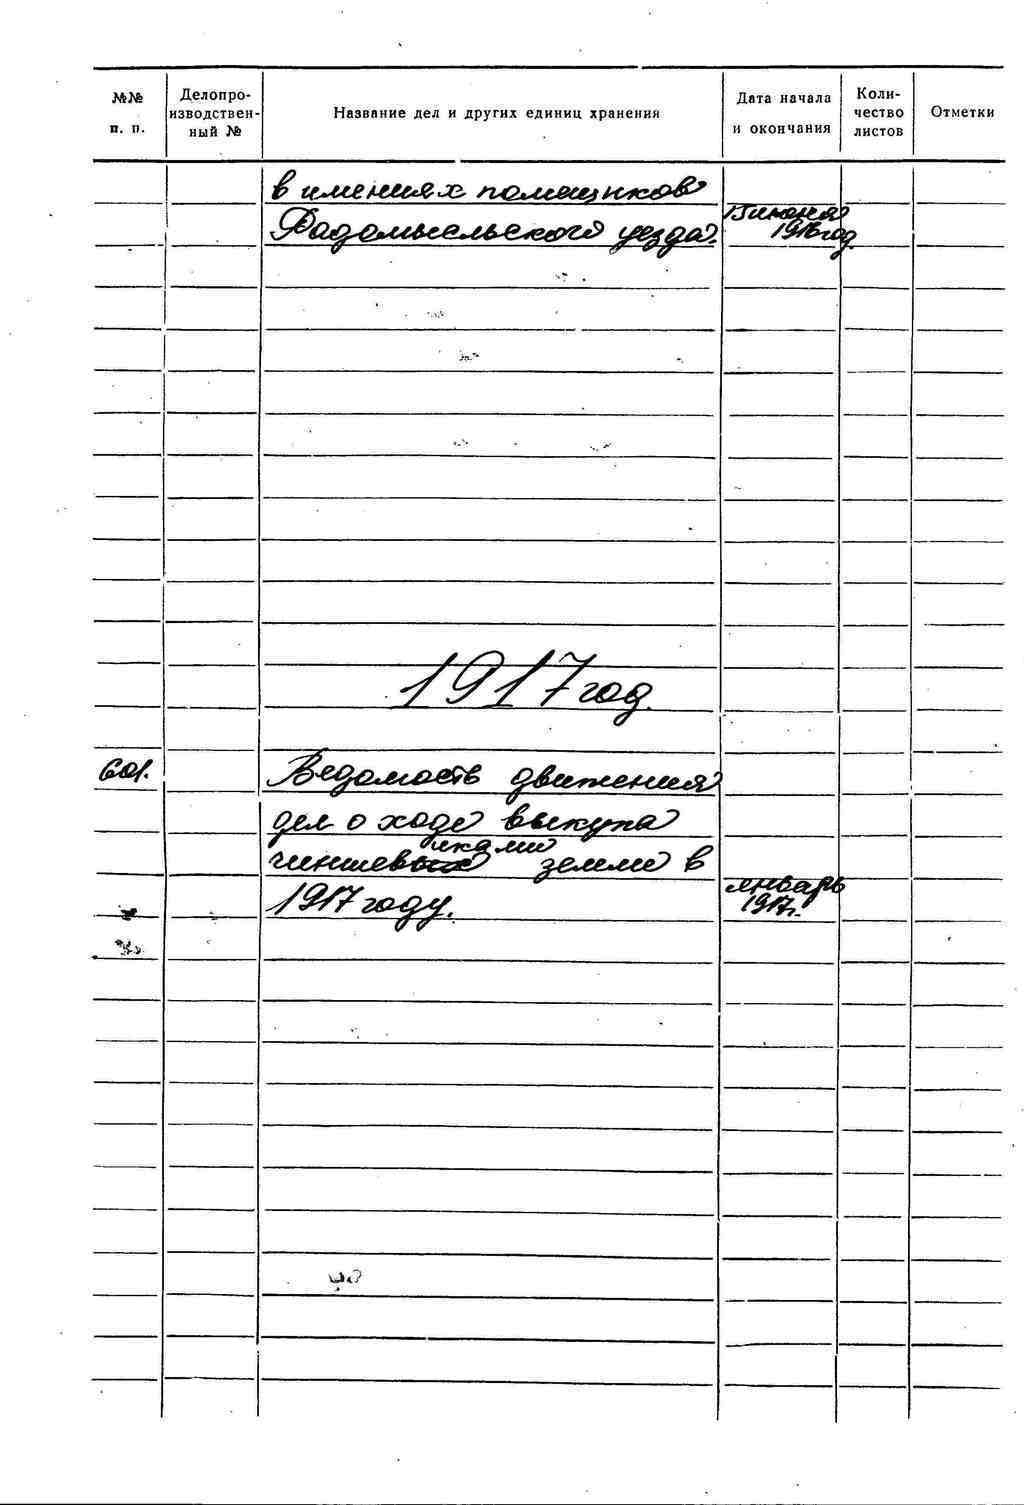 №№ п. п.
Делопро-
изводствен-
ный №
Название дел и других единиц хранения
Дата начала
и окончания
Коли-
чество
листов
Отметки
в имениях помещиков
Радомысльского уезда.
15 июня
1916 год.
1917 год.
601.
Ведомость движения
дел о ходе выкупа
иками
чиншевых земли в
1917 году.
январь
1917г.